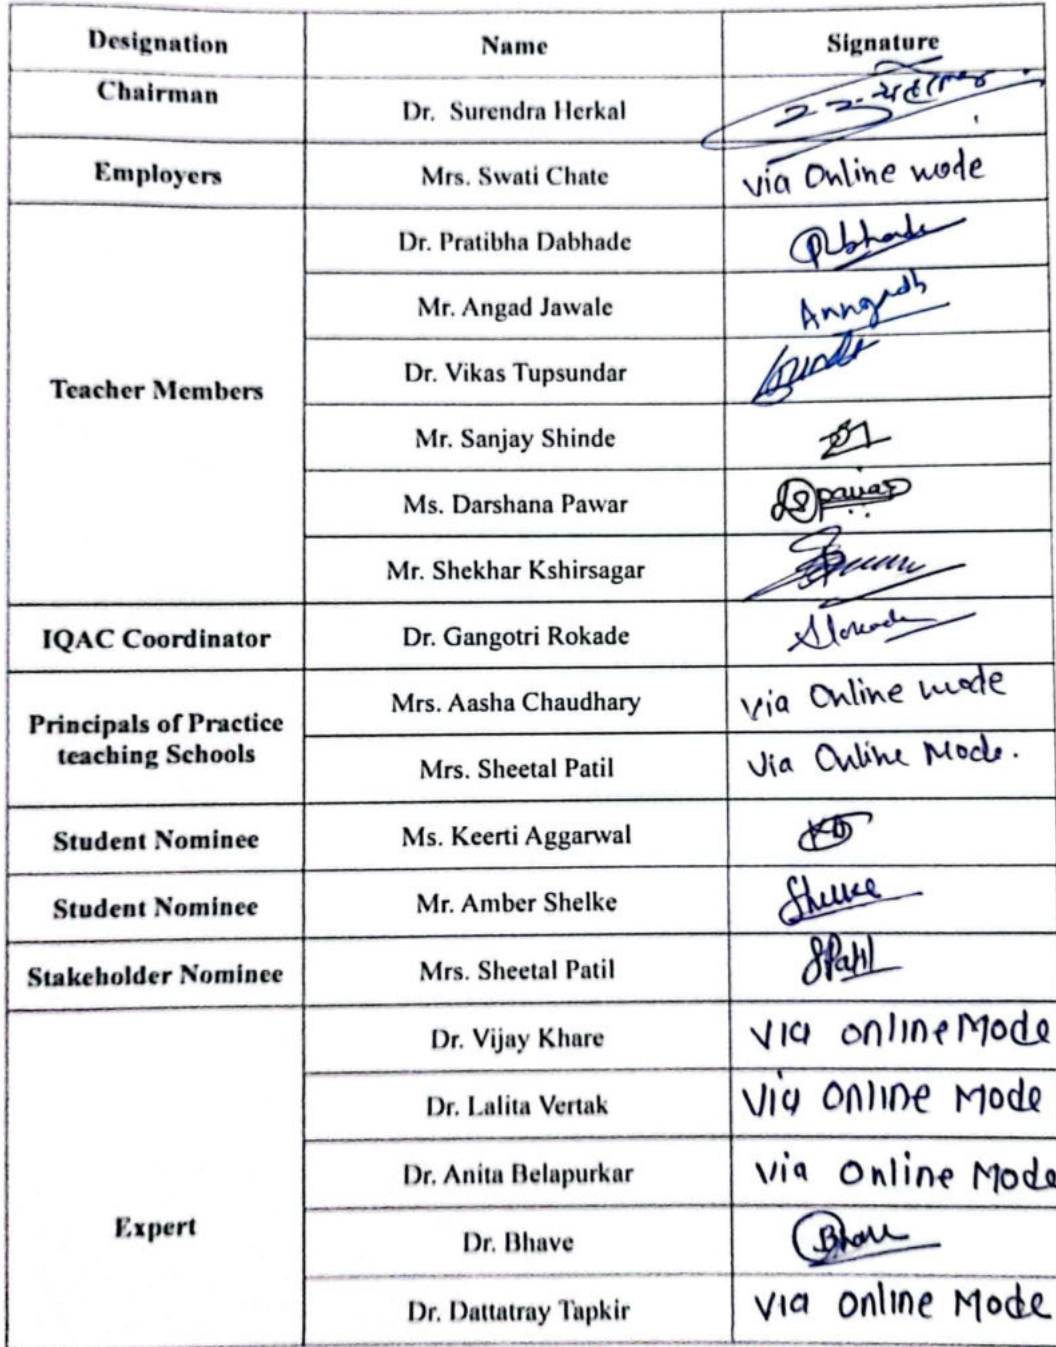 Designation Name Signature
Chairman Dr. Surendra Herkal
Employers Mrs. Swati Chate via Online mode
Teacher Members
Dr. Pratibha Dabhade
Mr. Angad Jawale
Dr. Vikas Tupsundar
Mr. Sanjay Shinde
Ms. Darshana Pawar Pawar
Mr. Shekhar Kshirsagar
IQAC Coordinator Dr. Gangotri Rokade
Principals of Practice
teaching Schools
Mrs. Aasha Chaudhary via Online mode
Mrs. Sheetal Patil Via Online Mode.
Student Nominee Ms. Keerti Aggarwal
Student Nominee Mr. Amber Shelke Shelke
Stakeholder Nominee Mrs. Sheetal Patil SPatil
Expert
Dr. Vijay Khare Via online Mode
Dr. Lalita Vertak Via Online Mode
Dr. Anita Belapurkar Via Online Mode
Dr. Bhave Bhave
Dr. Dattatray Tapkir Via Online Mode